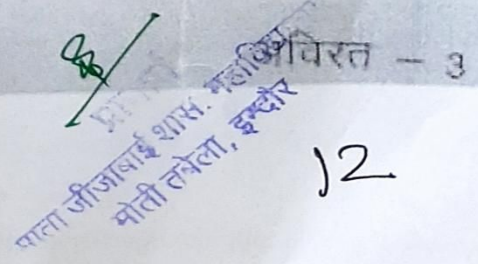 अविरत - 3
माता जीजाबाई शास.
मोती तबेला, इन्दौर
12